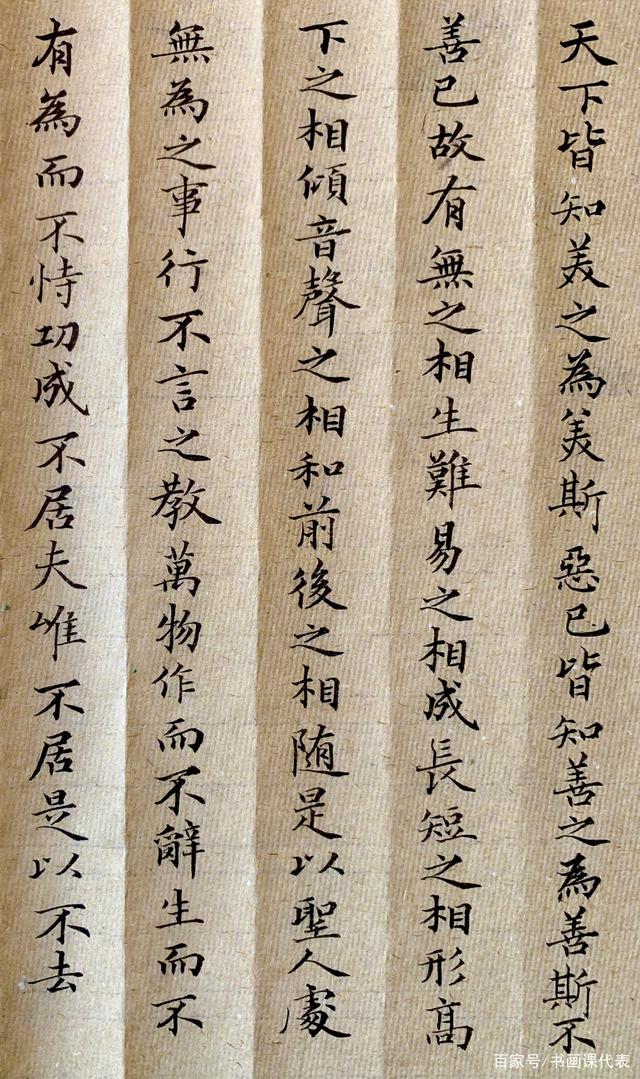 天下皆知美之為美斯惡已皆知善之為善斯不
善已故有無之相生難易之相成長短之相形高
下之相傾音聲之相和前後之相随是以聖人處
無為之事行不言之教萬物作而不辭生而不
有為而不恃功成不居夫唯不居是以不去
百家号/书画课代表